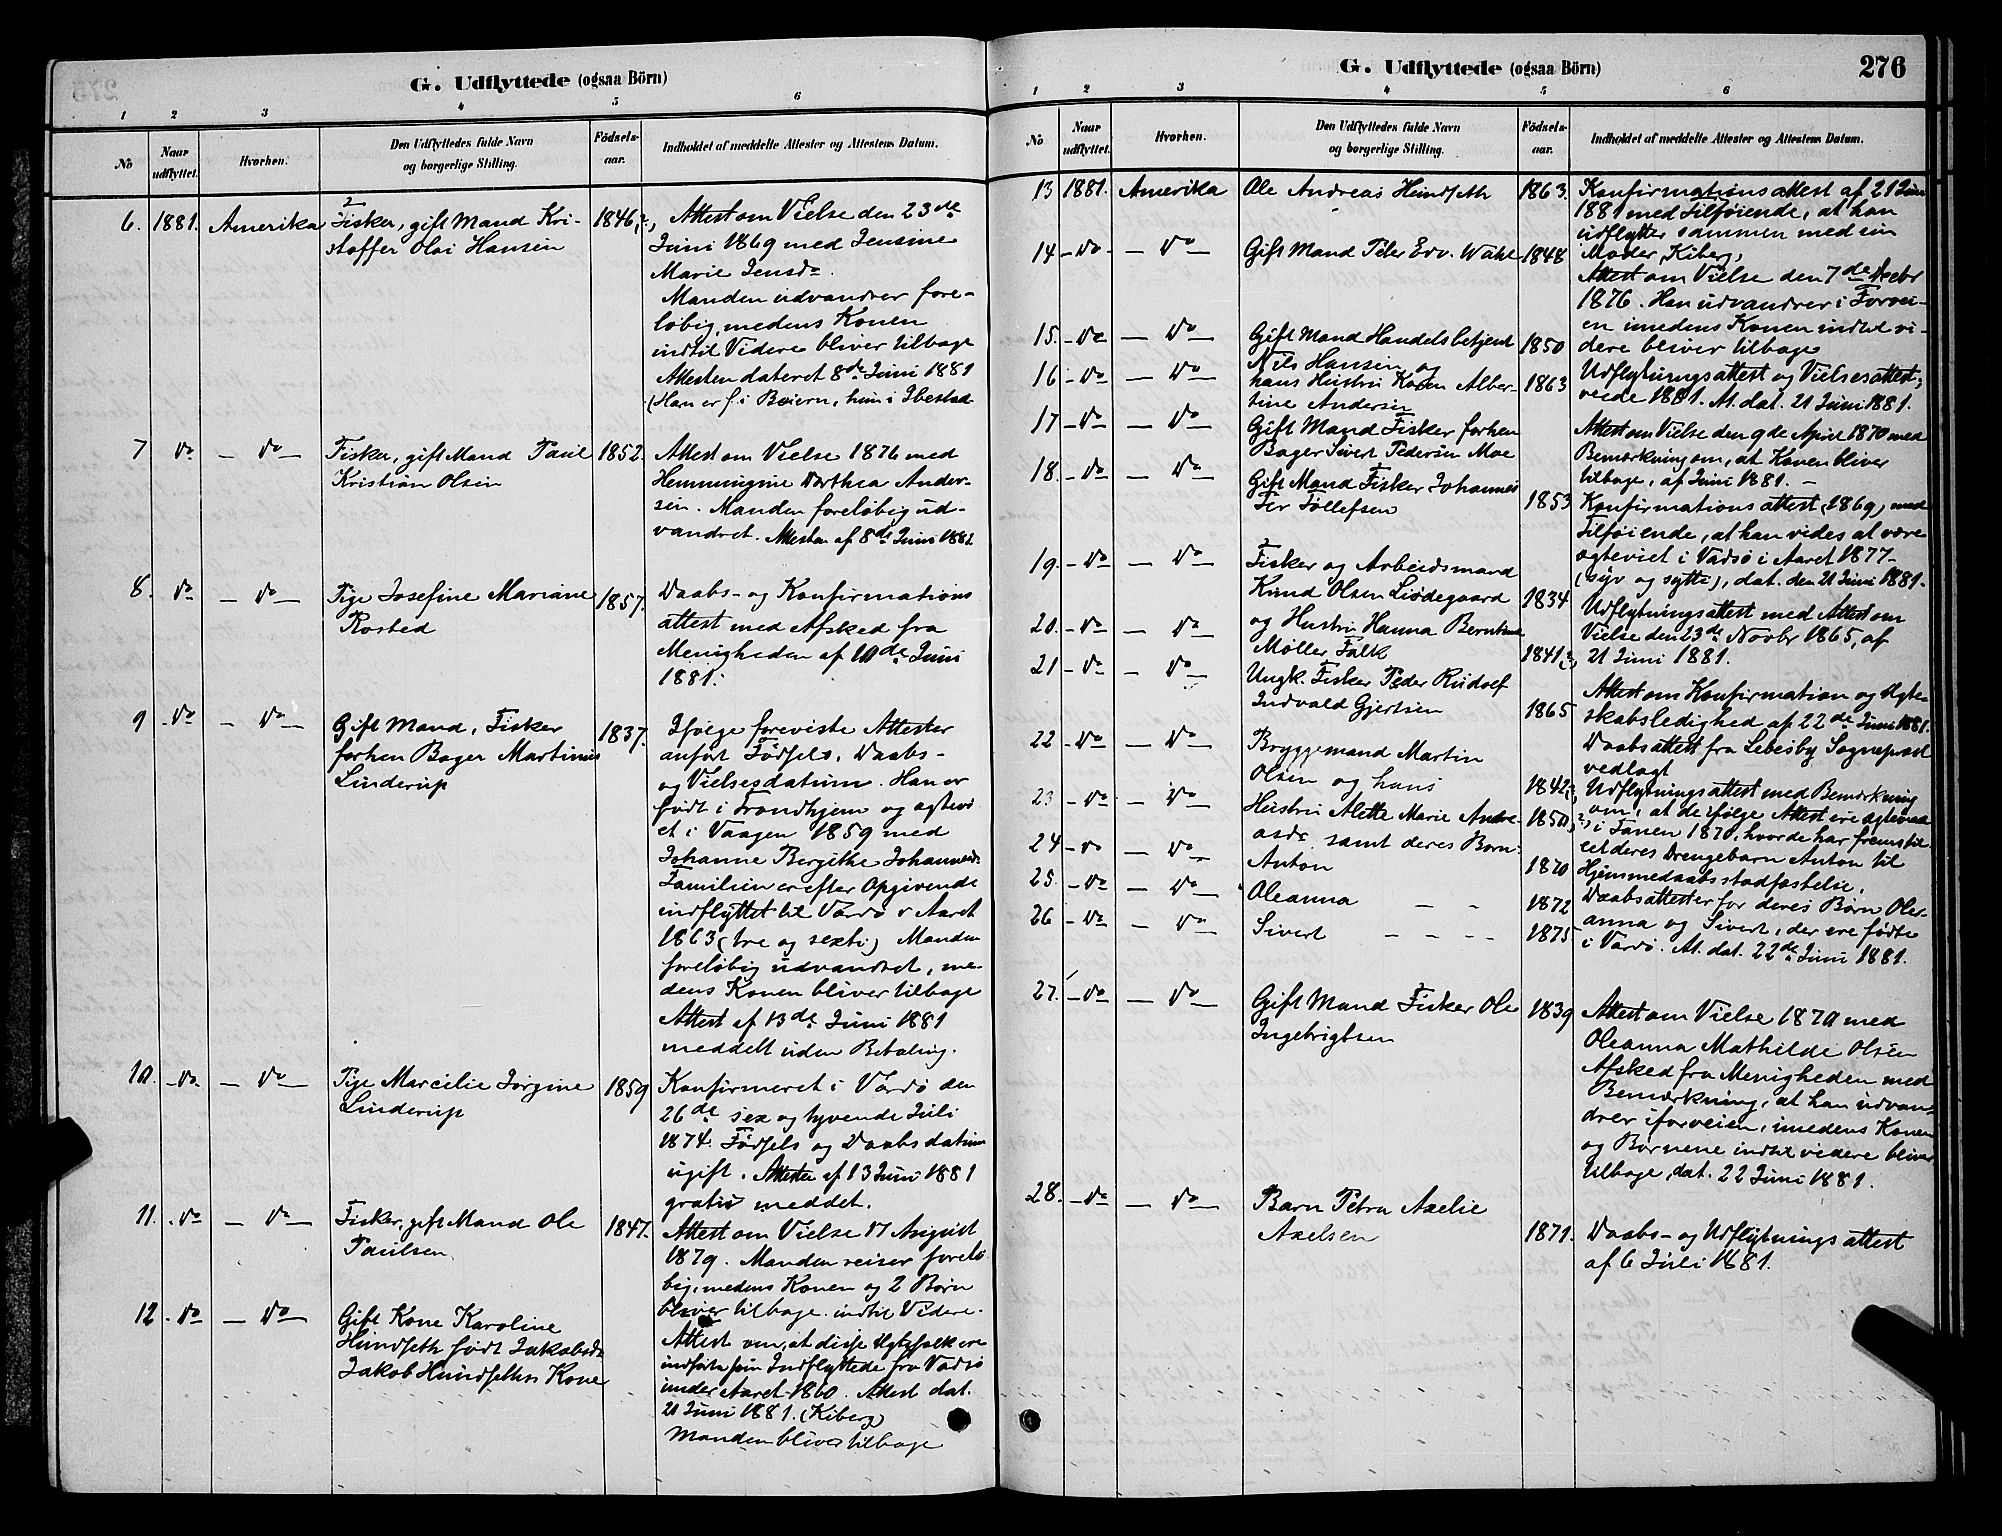 G. Udflyttede (ogsaa Börn)
1 2 3 4 5 6
No
Naar udflyttet.
Hvorhen.
Den Udflyttedes fulde Navn og borgerlige Stilling.
Födsels-aar.
Indholdet af meddelte Attester og Attestens Datum.
6. 1881. Amerika
Fisker, gift Mand Kri-
stoffer Olai Hansen
1846,
Attest om Vielse den 23de
Juni 1869 med Jensine
Marie Jensdr.
Manden udvandrer fore-
løbig, medens Konen
indtil Videre bliver tilbage
Attesten dateret 8de Juni 1881
(Han er f. i Beiern, hun i Ibestad
7 do — do —
Fisker, gift Mand Paul
Kristian Olsen
1852.
Attest om Vielse 1876 med
Hemmingine Dorthea Ander-
sen. Manden foreløbig ud-
vandret. Attesten af 8de Juni 1881
8. do — do —
Pige Josefine Mariane
Rosted
1857.
Daabs- og Konfirmations
attest med Afsked fra
Menigheden af 10de Juni
1881.
9 do — do —
Gift Mand, Fisker
forhen Bager Martinus
Linderup
1837.
Ifølge foreviste Attester
anført Fødsels, Daabs-
og Vielsesdatum. Han er
født i Trondhjem og agtevi
et i Vaagen 1859 med
Johanne Bergitte Johannesdr.
Familien er efter Opgivende
indflyttet til Vardø i Aaret
1863 (tre og sexti) Manden
foreløbig udvandret, me-
dens Konen bliver tilbage
Attest af 13de Juni 1881
meddelt uden Betaling.
10. do — do —
Pige Marcelie Jørgine
Linderup
1859
Konfirmeret i Vardø den
26de sex og tyvende Juli
1874. Fødsels og Daabsdatum
ugift. Attester af 13 Juni 1881
gratis meddelt.
11. do — do —
Fisker, gift Mand Ole
Paulsen
1847.
Attest om Vielse 17 August
1879. Manden reiser forelø
big, medens Konen og 2 Børn
bliver tilbage indtil Videre.
12 do — do —
Gift Kone Karoline
Hundseth født Jakobsdr.
Jakob Hundseths Kone
Attest om, at disse Ægtefolk ere
indførte som Indflyttede fra Vadsø
under Aaret 1860. Attest dat.
21 Juni 1881. (Kiberg)
Manden bliver tilbage
G. Udflyttede (ogsaa Börn)
276
1 2 3 4 5 6
No
Naar udflyttet.
Hvorhen.
Den Udflyttedes fulde Navn og borgerlige Stilling.
Födsels-aar.
Indholdet af meddelte Attester og Attestens Datum.
13 1881. Amerika
Ole Andreas Hundseth
1863.
Konfirmationsattest af 21 Juni
1881 med Tilføiende, at han
udflytter sammen med sin
Moder, Kiberg,
14 do — do
Gift Mand Peter Edv. Wahl
1848
Attest om Vielse den 7de Decbr
1876. Han udvandrer i Forvei-
en imedens Konen indtil vi-
dere bliver tilbage
15. do — do
Gift Mand Handelsbetjent
Nils Hansen og
1850
Udflytningsattest og Vielsesattest,
viede 1881. At. dat. 21 Juni 1881.
16 do — do
hans Hustru Karen Alber-
tine Andersen
1863
17 do — do
Gift Mand Fisker forhen
Bager Sivert Pedersen Moe
Attest om Vielse den 9de April 1870 med
Bemærkning om, at Konen bliver
tilbage, af Juni 1881. —
18. do — do
Gift Mand Fisker Johannes
Tollefsen
1853
Konfirmationsattest (1869) med
Tilføiende, at han vides at være
ægteviet i Vadsø i Aaret 1877
(syv og sytti), dat. den 21 Juni 1881.
19. do — do
Fisker og Arbeidsmand
Knud Olsen Lødegaard
1834
Udflytningsattest med Attest om
Vielse den 23de Novbr 1865, af
21 Juni 1881.
20. do — do
og Hustru Hanna Berntine
Møller Falk
1841,
21 do — do
Ungk. Fisker Peder Rudolf
Indvald Gjertsen
1865
Attest om Konfirmation og Ægte-
skabsledighed af 22de Juni 1881.
Daabsattest fra Lebesby Sognepræst
vedlagt
22 do — do
Bryggemand Martin
Olsen og hans
1842,
Udflytningsattest med Bemærkning
om, at de ifølge Attest ere ægteviede
i Tanen 1870, hvor de har fremstil
let deres Drengebarn Anton til
Hjemmedaabsstadfæstelse.
23 do — do
Hustru Alette Marie Andre-
asdr. samt deres Børn:
1850,
24 do — do
Anton
1870
25. do — do
Oleanna — -
1872
Daabsattester for deres Børn Ole-
anna og Sivert, der ere fødte
i Vardø. At. dat. 22de Juni 1881.
26 do — do
Sivert — - - -
1875
27. do — do
Gift Mand Fisker Ole
Ingebrigtsen
1839
Attest om Vielse 1870 med
Oleanna Mathilde Olsen
Afsked fra Menigheden med
Bemærkning, at han udvan-
drer i forveien, imedens Konen
og Børnene indtil videre bliver
tilbage, dat. 22 Juni 1881.
28. do — do
Barn Petra Axelie
Axelsen
1871.
Daabs- og Udflytnings attest
af 6 Juli 1881.